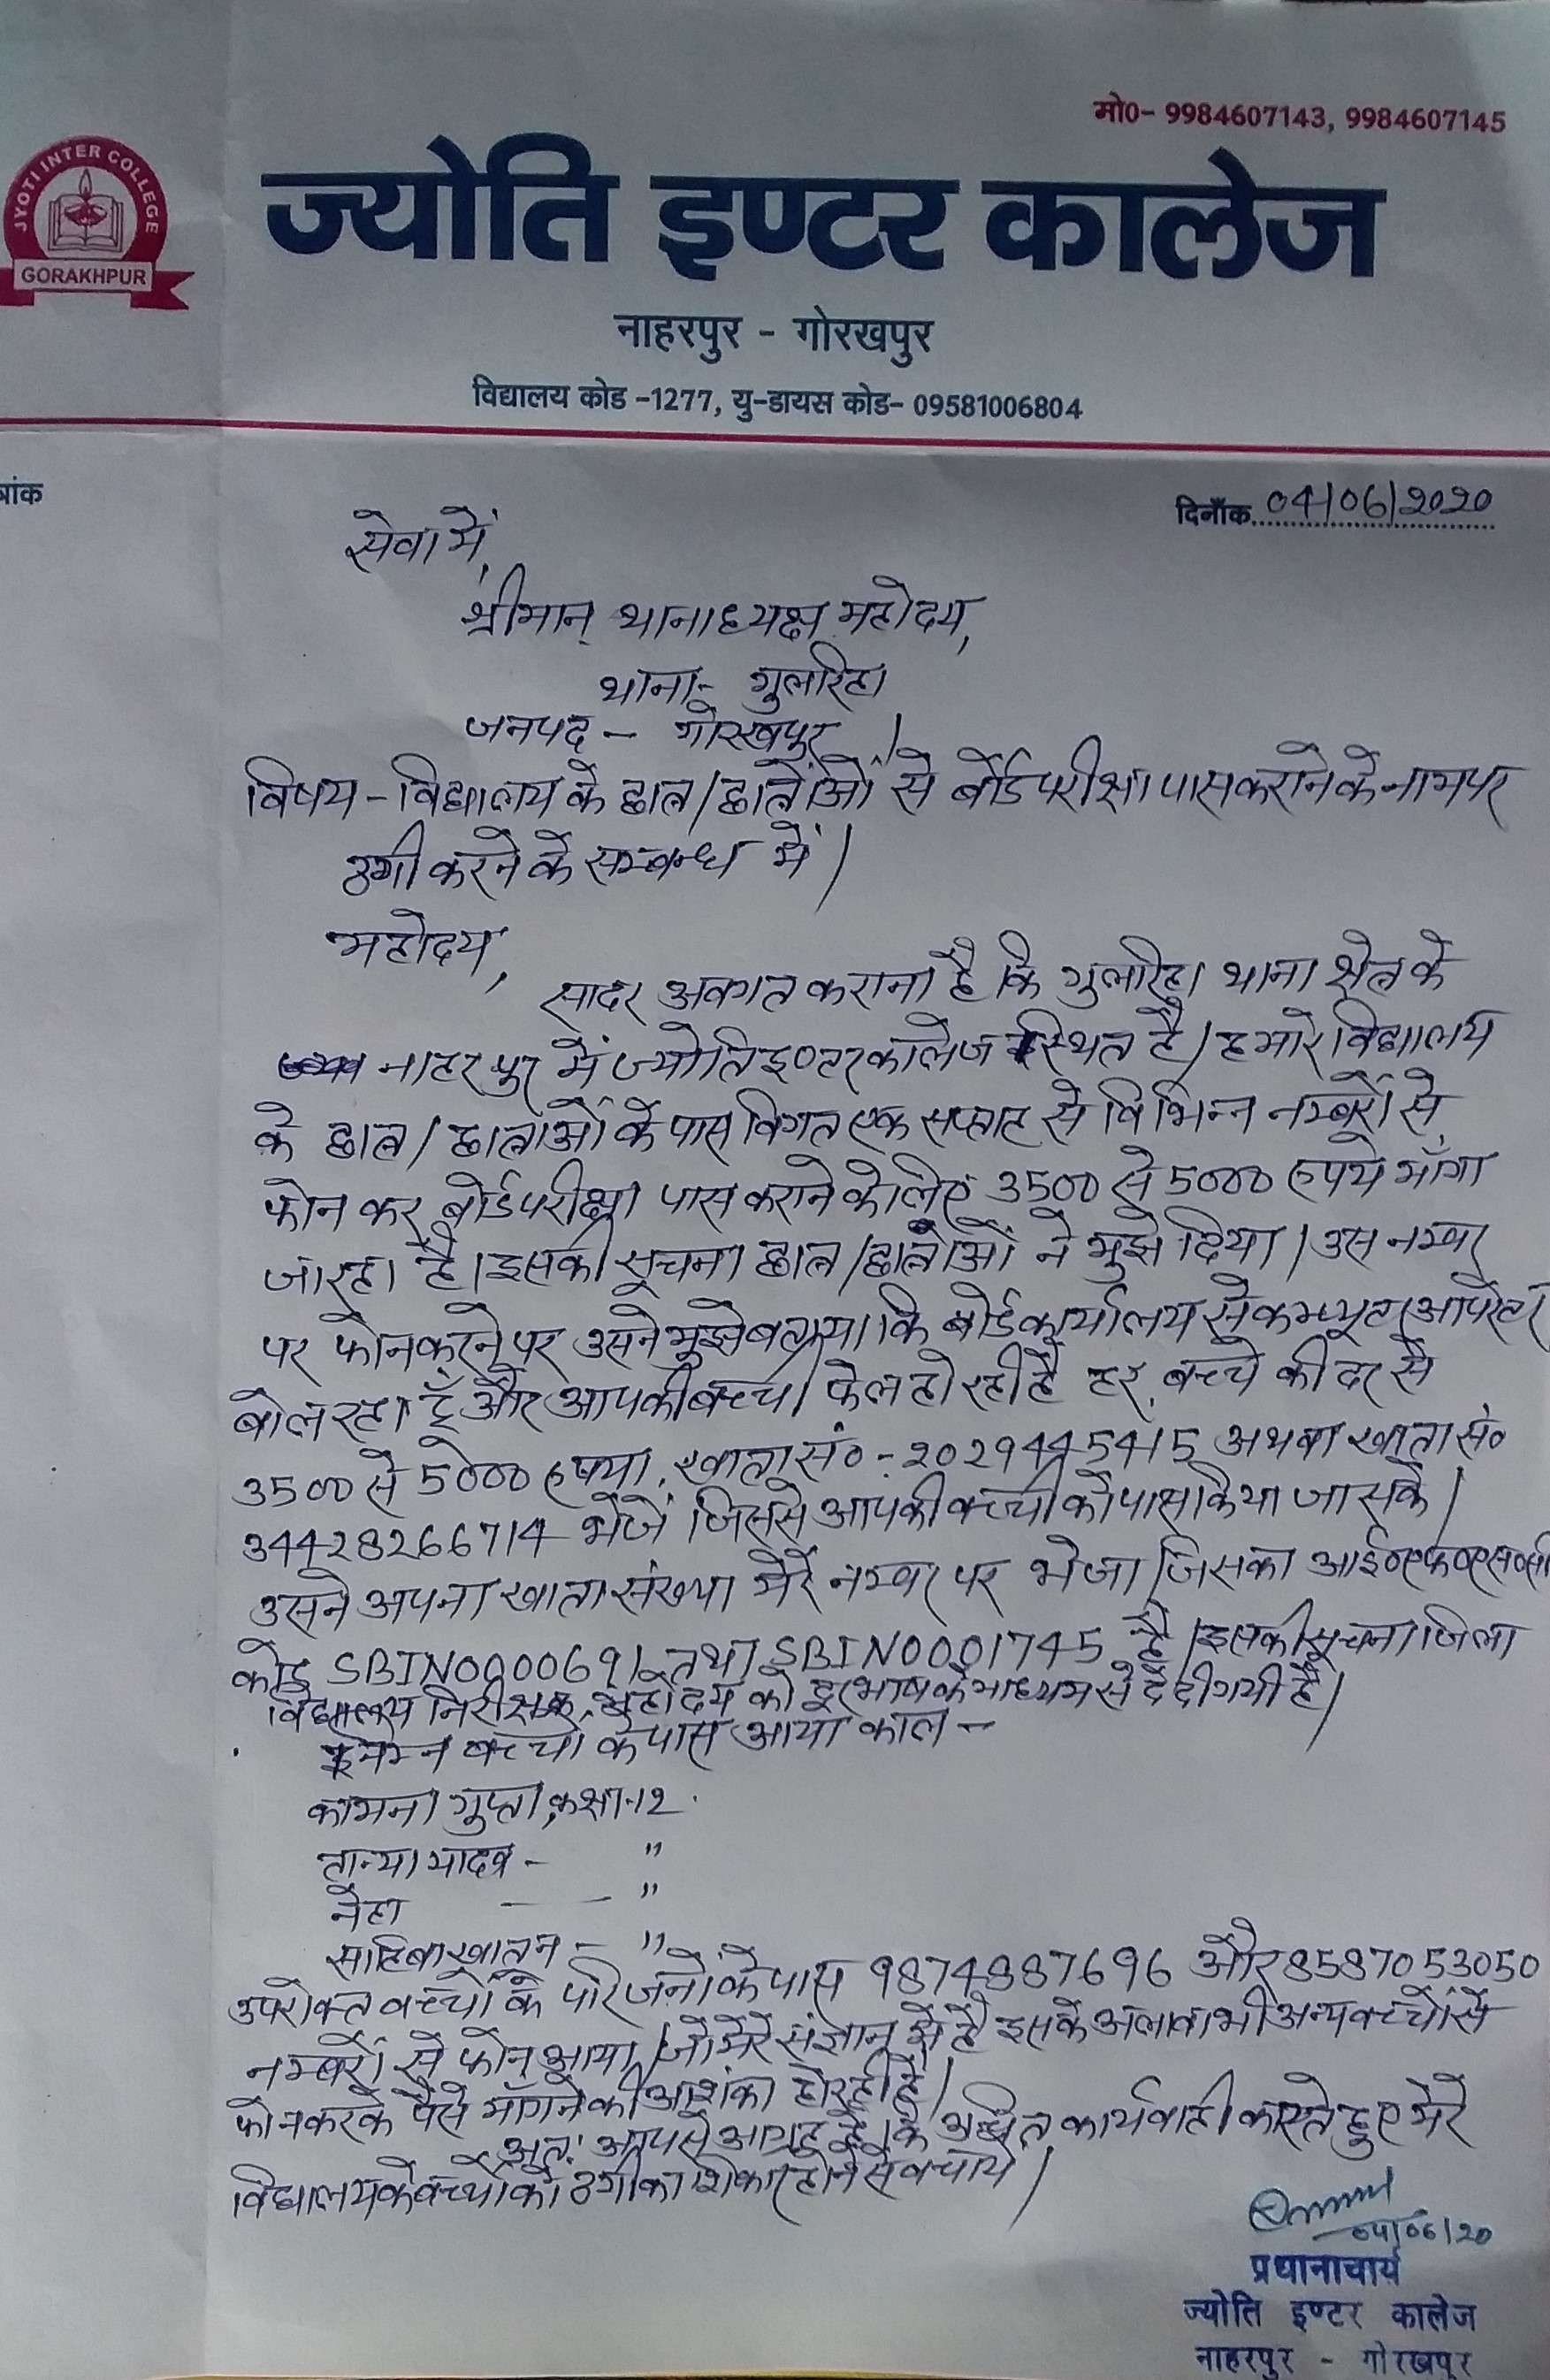 मो0- 9984607143, 9984607145
JYOTI INTER COLLEGE
GORAKHPUR
ज्योति इण्टर कालेज
नाहरपुर - गोरखपुर
विद्यालय कोड -1277, यु-डायस कोड- 09581006804
त्रांक
दिनाँक 04/06/2020
सेवा में,
श्रीमान् थानाध्यक्ष महोदय,
थाना:- गुलरिहा
जनपद - गोरखपुर ।
विषय - विद्यालय के छात्र/छात्राओं से बोर्ड परीक्षा पास कराने के नाम पर
ठगी करने के सम्बन्ध में ।
महोदय,
सादर अवगत कराना है कि गुलरिहा थाना क्षेत्र के
नाहरपुर में ज्योति इण्टर कालेज स्थित है । हमारे विद्यालय
के छात्र/छात्राओं के पास विगत एक सप्ताह से विभिन्न नम्बरों से
फोन कर बोर्ड परीक्षा पास कराने के लिए 3500 से 5000 रुपये माँगा
जा रहा है । इसकी सूचना छात्र/छात्राओं ने मुझे दिया । उस नम्बर
पर फोन करने पर उसने मुझे बताया कि बोर्ड कार्यालय से कम्प्यूटर आपरेटर
बोल रहा हूँ और आपकी बच्ची फेल हो रही है हर बच्चे की दर से
3500 से 5000 रुपया, खाता सं० - 2029445415 अथवा खाता सं०
34428266714 भेजें जिससे आपकी बच्ची को पास किया जा सके ।
उसने अपना खाता संख्या मेरे नम्बर पर भेजा जिसका आई०एफ०एस०सी
कोड SBIN0000691 तथा SBIN0001745 है । इसकी सूचना जिला
विद्यालय निरीक्षक महोदय को दूरभाष के माध्यम से दे दी गयी है ।
निम्न बच्चों के पास आया काल -
कामना गुप्ता, कक्षा-12
तान्या यादव - "
नेहा - "
साहिबा खातून - "
उपरोक्त बच्चों के परिजनों के पास 9874887696 और 8587053050
नम्बरों से फोन आया, जो मेरे संज्ञान में है इसके अलावा भी अन्य बच्चों से
फोन करके पैसे माँगने की आशंका हो रही है ।
अतः आपसे आग्रह है कि उचित कार्यवाही करते हुए मेरे
विद्यालय के बच्चों को ठगी का शिकार होने से बचायें ।
04/06/20
प्रधानाचार्य
ज्योति इण्टर कालेज
नाहरपुर - गोरखपुर